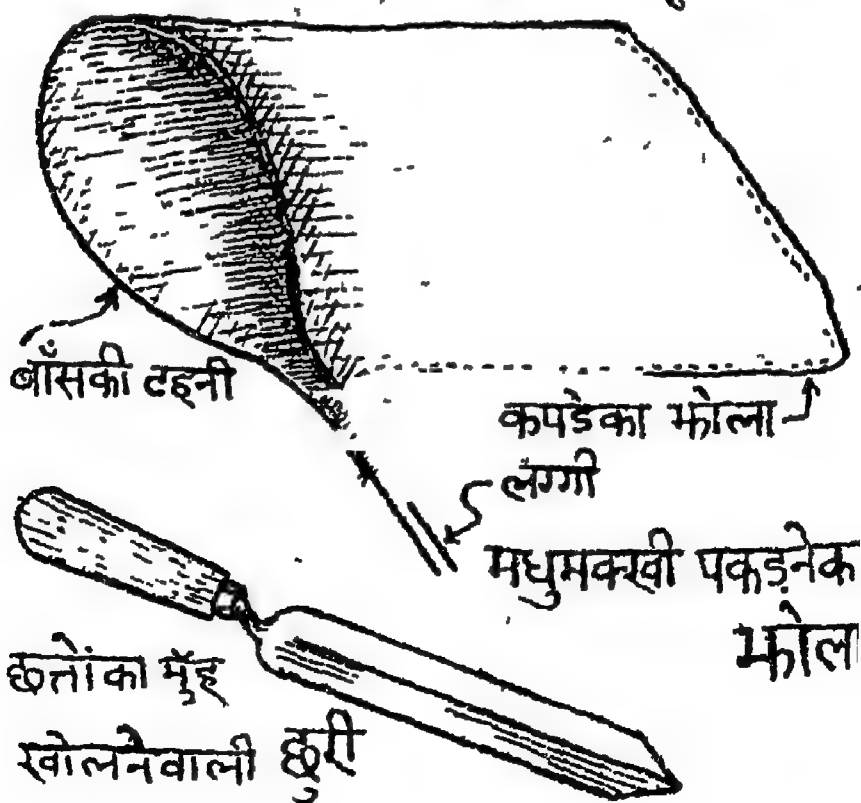 बाँसकी टहनी
कपडेका झोला
लग्गी
मधुमक्खी पकड़नेक
झोल
छत्तोंका मुँह
खोलनेवाली छुरी